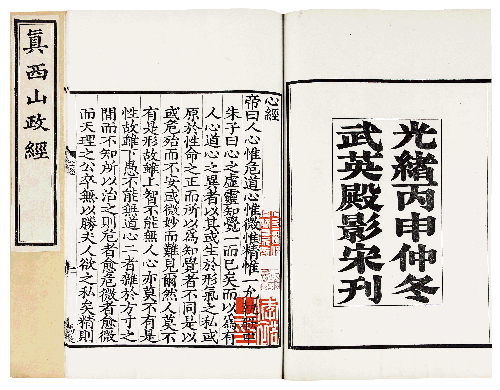 光緒丙申仲冬
武英殿影宋刊
心經
帝曰人心惟危道心惟微惟精惟一允執厥中
朱子曰心之虛靈知覺一而已矣而以為有
人心道心之異者以其或生於形氣之私或
原於性命之正而所以為知覺者不同是以
或危殆而不安或微妙而難見爾然人莫不
有是形故雖上智不能無人心亦莫不有是
性故雖下愚不能無道心二者雜於方寸之
間而不知所以治之則危者愈危微者愈微
而天理之公卒無以勝夫人欲之私矣精則
真西山政經